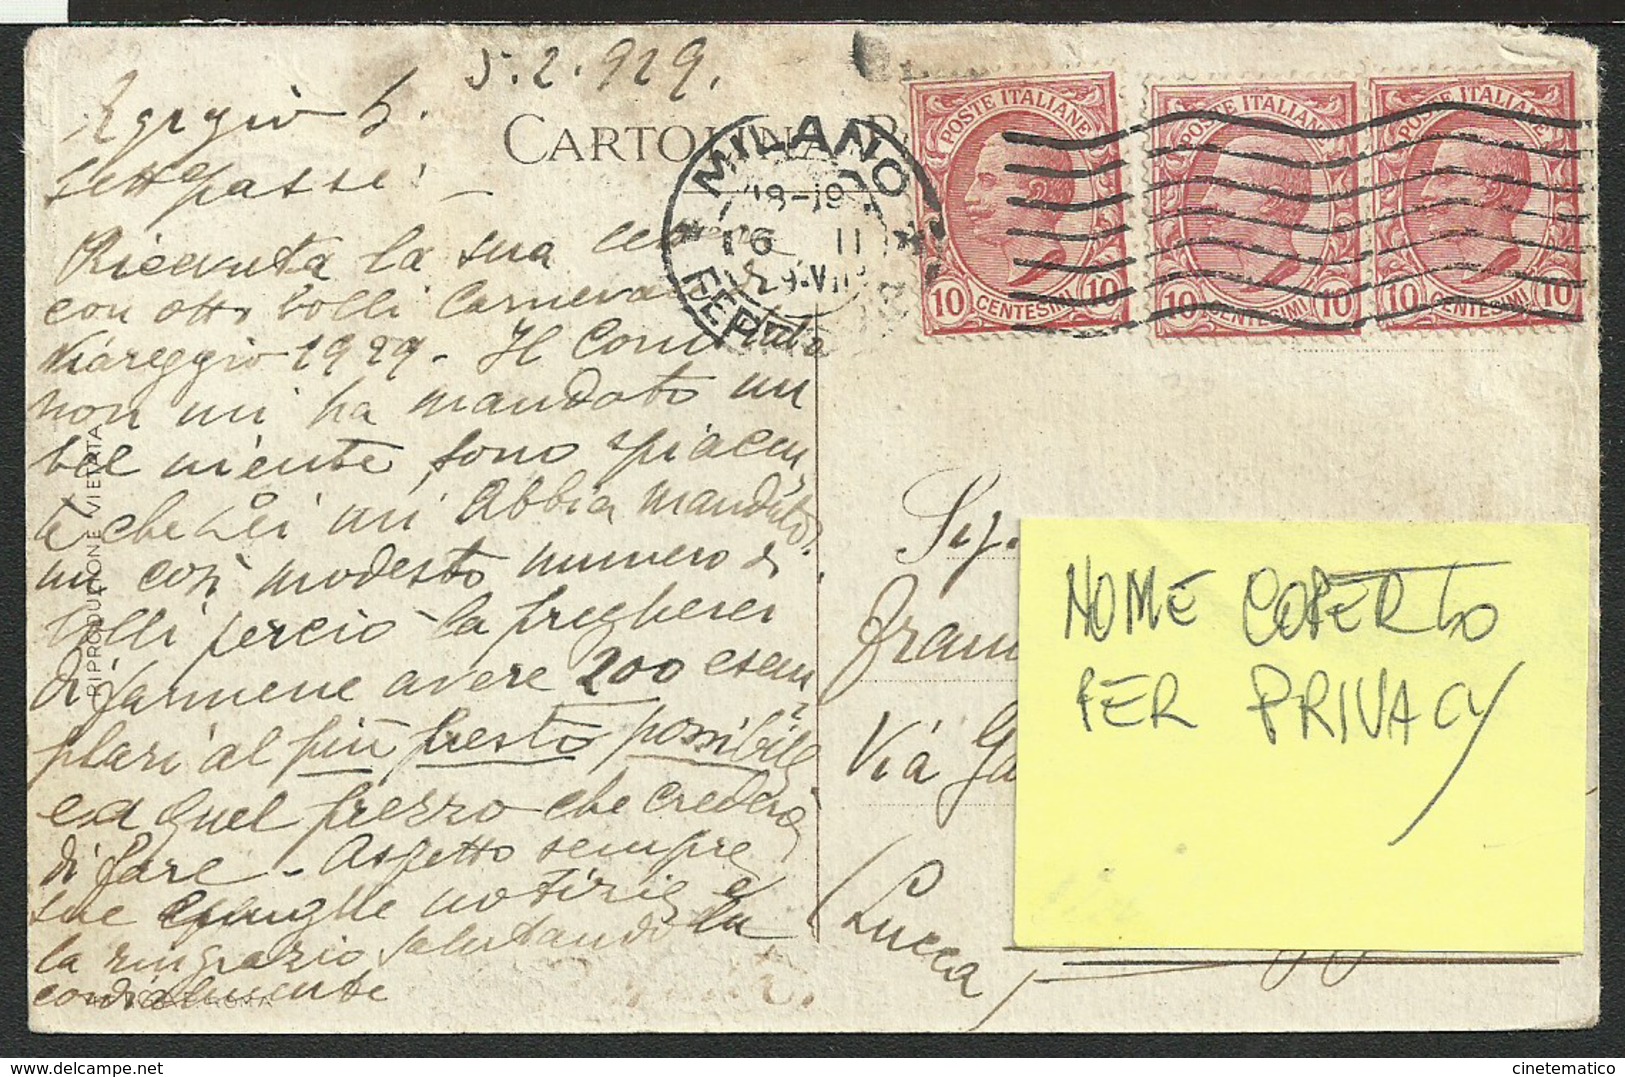 5.2.929.
Egregio S.
Settepassi:
CARTOLINA P
MILANO
18-19
6 II
29-VII
FERR
POSTE ITALIANE
10 CENTESIMI 10
POSTE ITALIANE
10 CENTESIMI 10
POSTE ITALIANE
10 CENTESIMI 10
Ricevuta la sua
con otto bolli Carnevale
Viareggio 1929 - Il Comitato
non mi ha mandato un
bel niente, sono spiacen
te che Lei mi abbia mandato
un così modesto numero di
bolli perciò la pregherei
di farmene avere 200 esem
plari al più presto possibile
e a quel prezzo che crederà
di fare - Aspetto sempre
sue notizie e
la ringrazio salutandola
cordialmente
RIPRODUZIONE VIETATA
Sig.
Fran
Via Ga
(Lucca)
NOME COPERTO
PER PRIVACY
delcampe.net
cinetematico